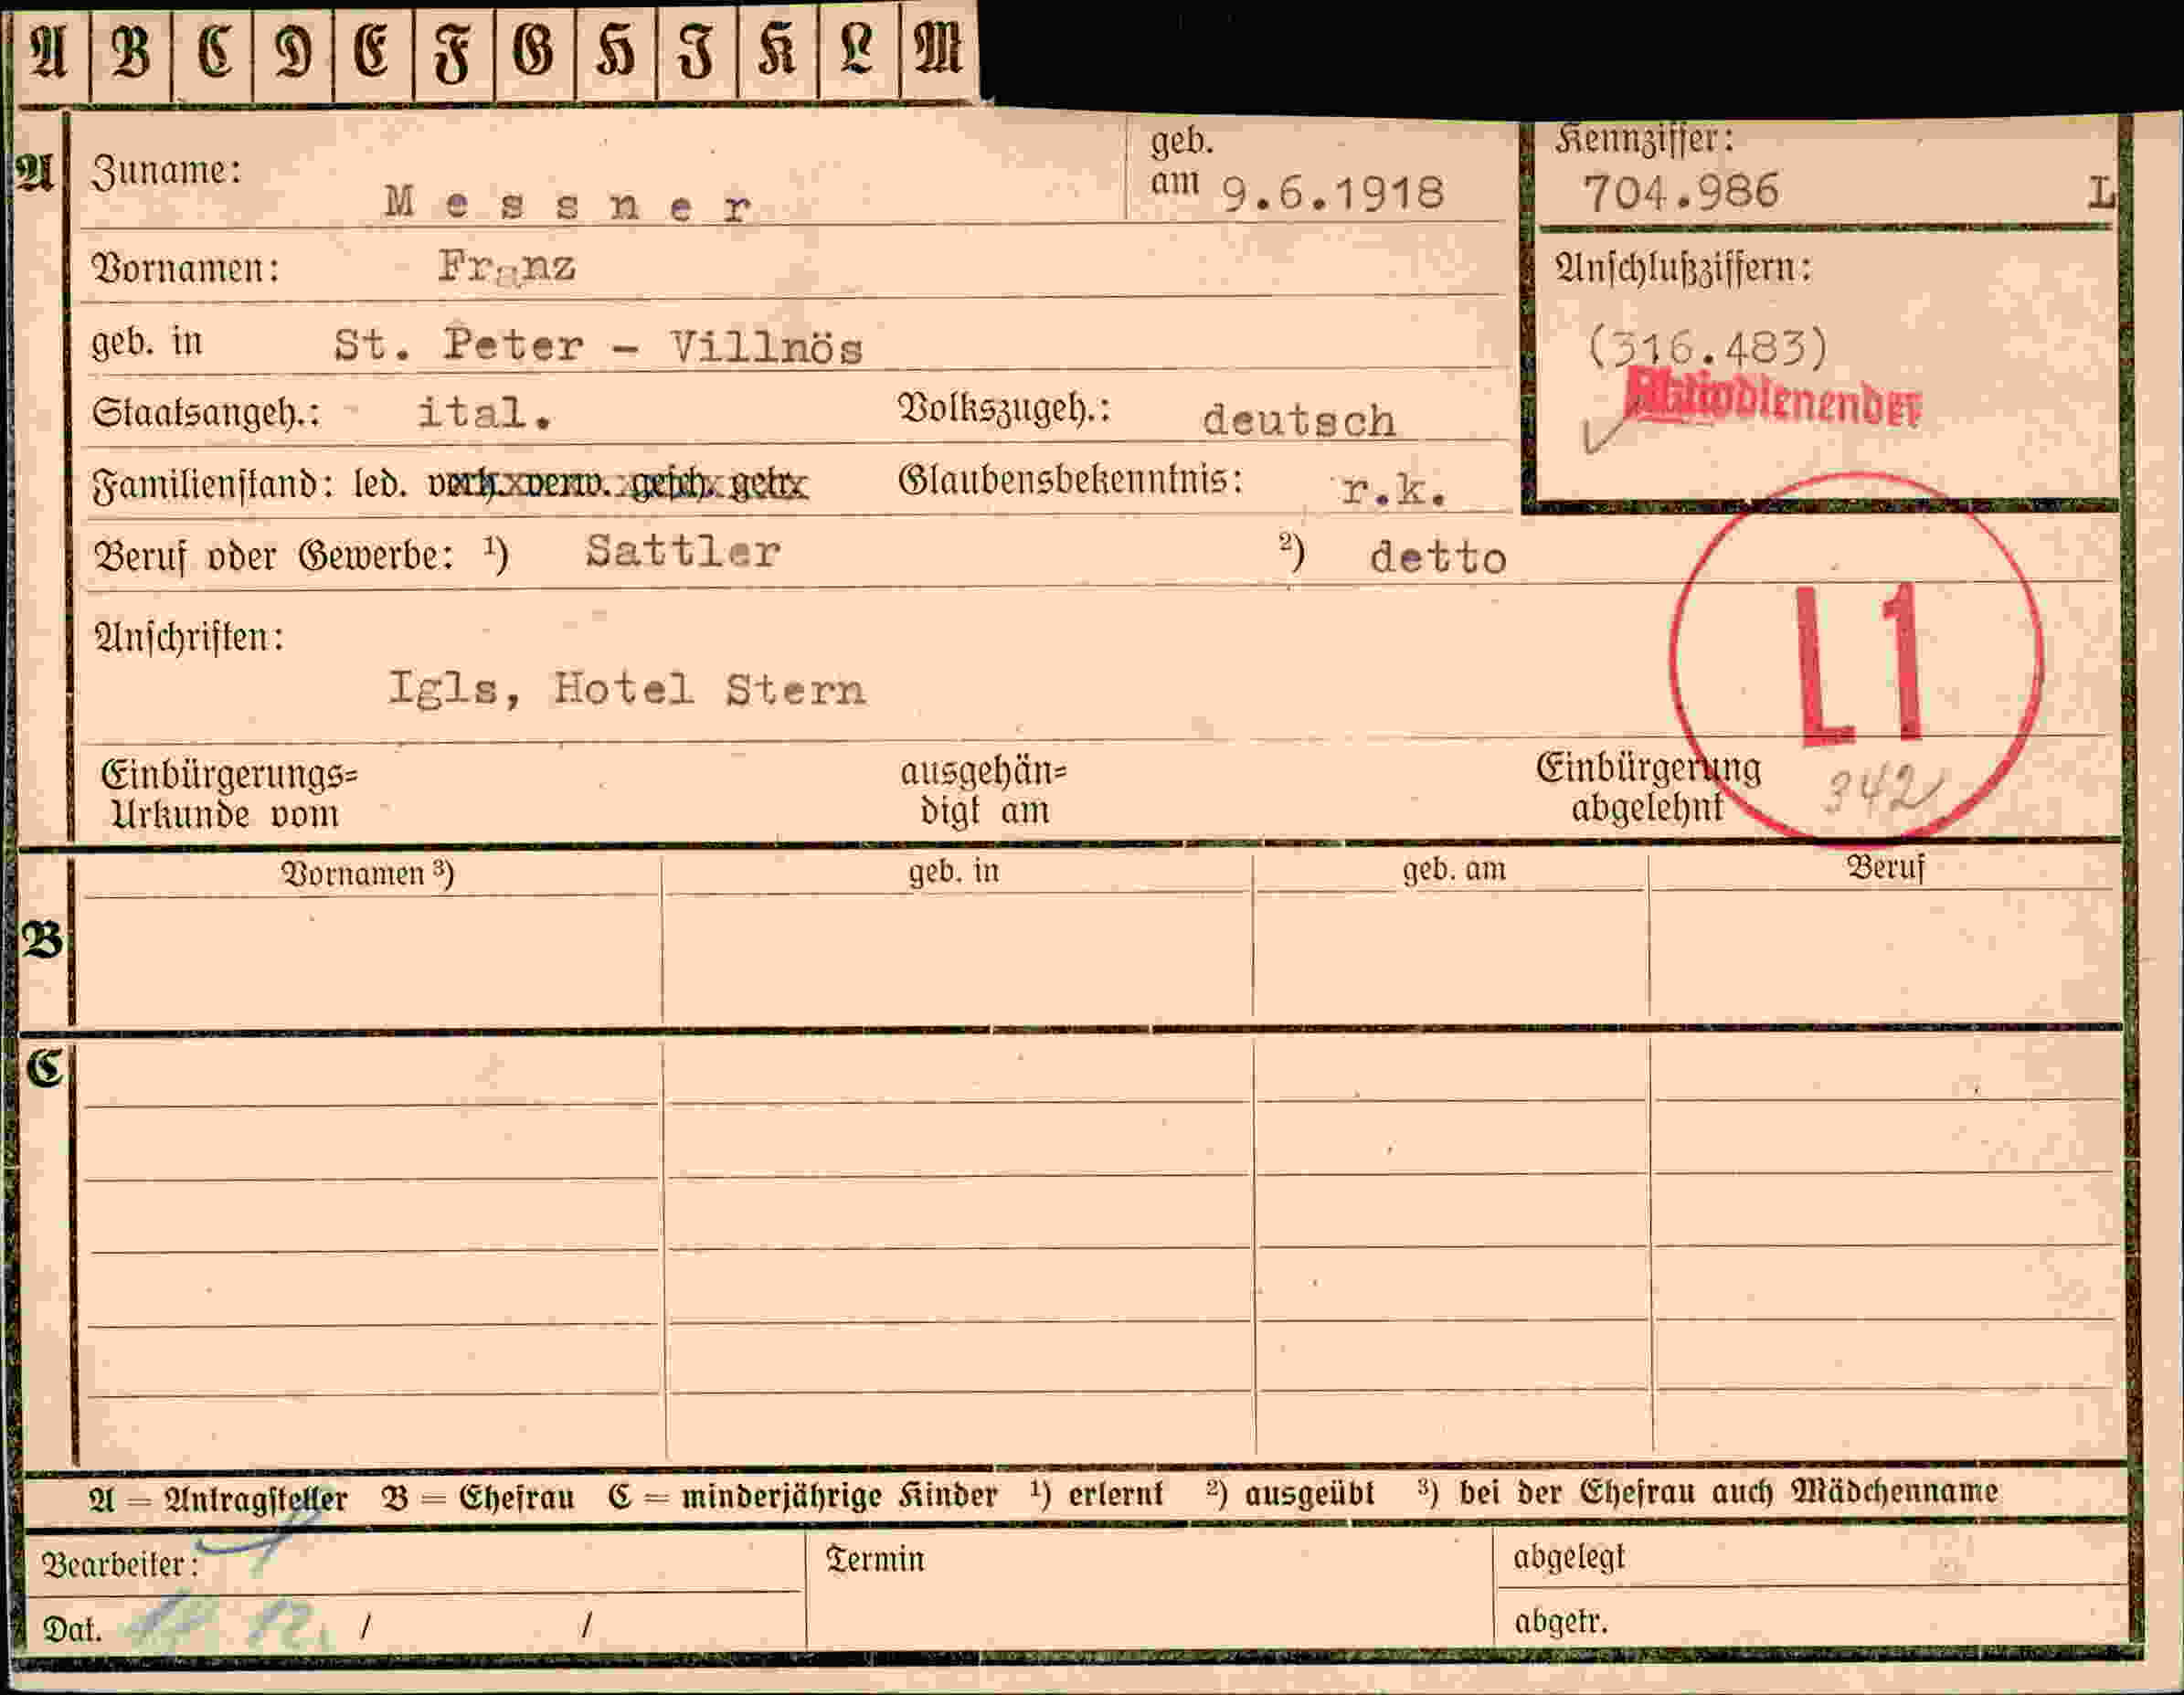 A B C D E F G H I K L M
A Zuname: Messner geb. am 9.6.1918 Kennziffer: 704.986 L
Vornamen: Franz Anschlußziffern:
geb. in St. Peter - Villnös (316.483)
Staatsangeh.: ital. Volkszugeh.: deutsch Aktivdienender
Familienstand: led. verh. verw. gesch. getr. Glaubensbekenntnis: r.k.
Beruf oder Gewerbe: ¹) Sattler ²) detto
Anschriften: L1
Igls, Hotel Stern
Einbürgerungs= ausgehän= Einbürgerung 342
Urkunde vom digt am abgelehnt
Vornamen ³) geb. in geb. am Beruf
B
C
A = Antragsteller B = Ehefrau C = minderjährige Kinder ¹) erlernt ²) ausgeübt ³) bei der Ehefrau auch Mädchenname
Bearbeiter: Termin abgelegt
Dat. / / abgetr.